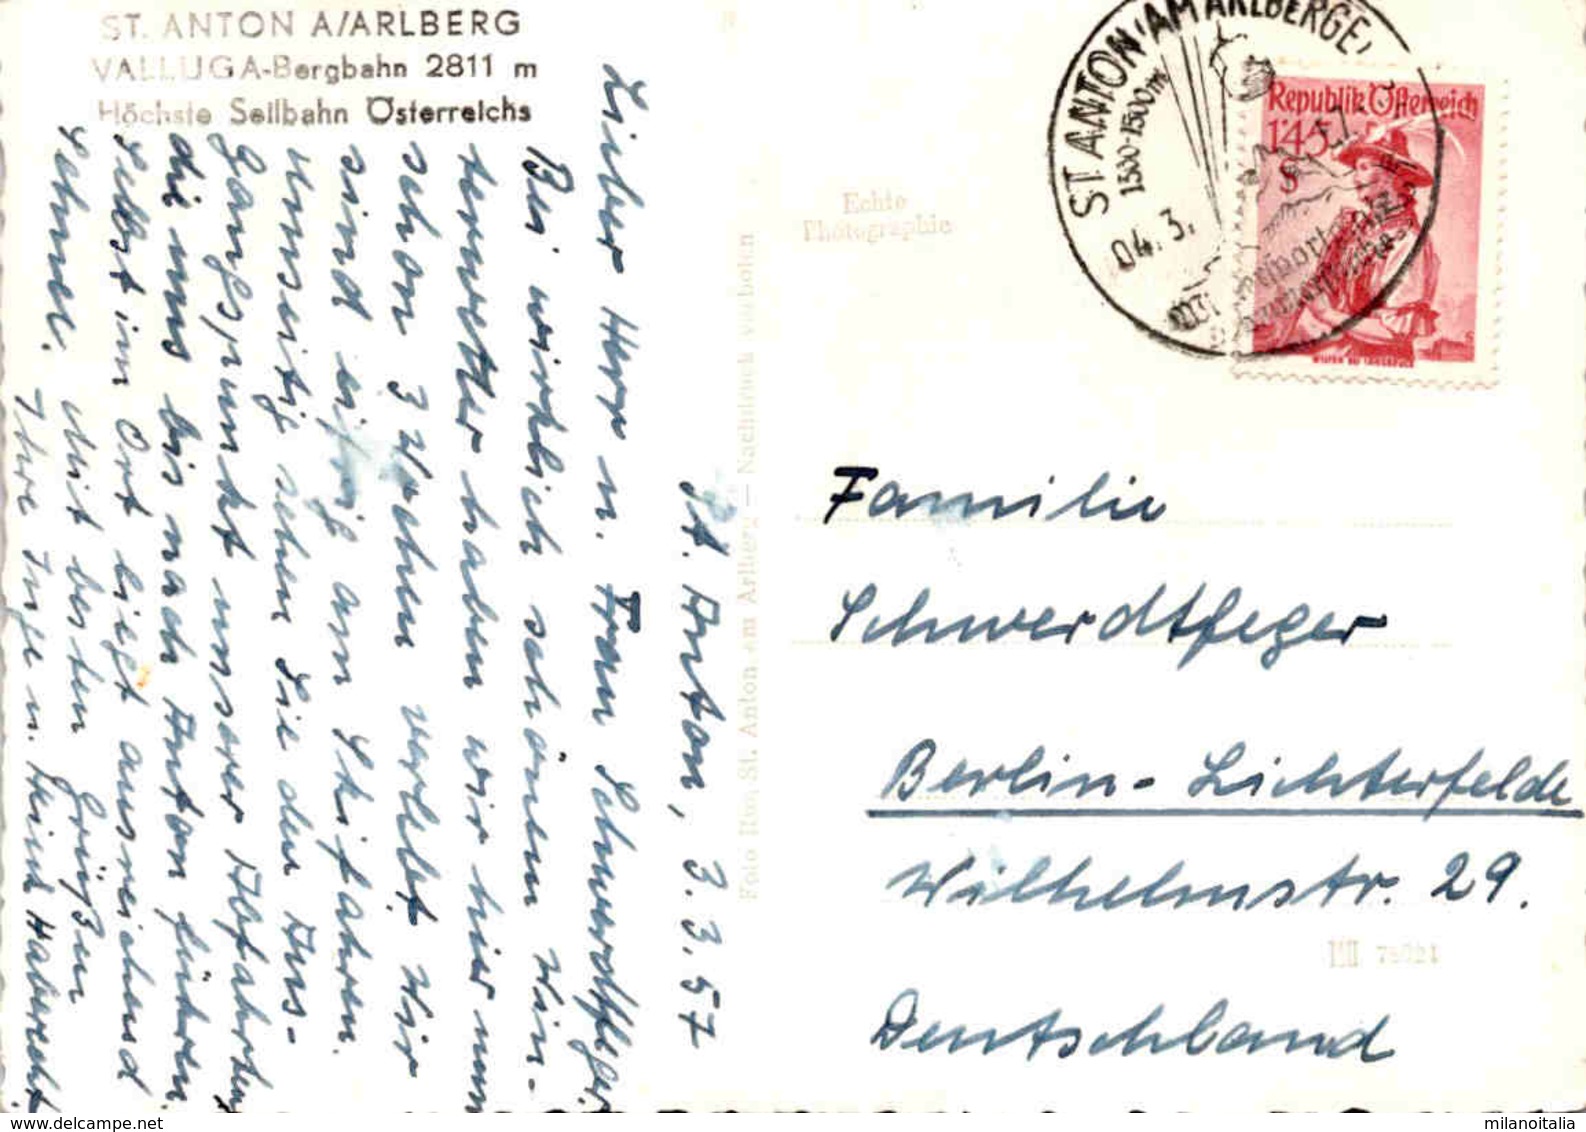 ST. ANTON A/ARLBERG
VALLUGA-Bergbahn 2811 m
Höchste Seilbahn Österreichs
St. Anton, 3.3.57
Lieber Herr u. Frau Schwerdtfeger
Bei wirklich schönem Win-
terwetter haben wir hier nun
schon 3 Wochen verlebt. Wir
sind eifrig am Skifahren.
Umseitig sehen Sie den Aus-
gangspunkt unserer Abfahrten,
die uns bis nach Anton führen.
Selbst im Ort liegt ausreichend
Schnee. Mit besten Grüßen
Ihre Inge u. Heinz Haberecht
Foto Rao, St. Anton am Arlberg — Nachdruck verboten
Echte
Photographie
ST. ANTON AM ARLBERGE
1300-1500 m
04. 3. 57
Republik Österreich
1'45
S
Familie
Schwerdtfeger
Berlin-Lichterfelde
Wilhelmstr. 29.
Deutschland
milanoitalia